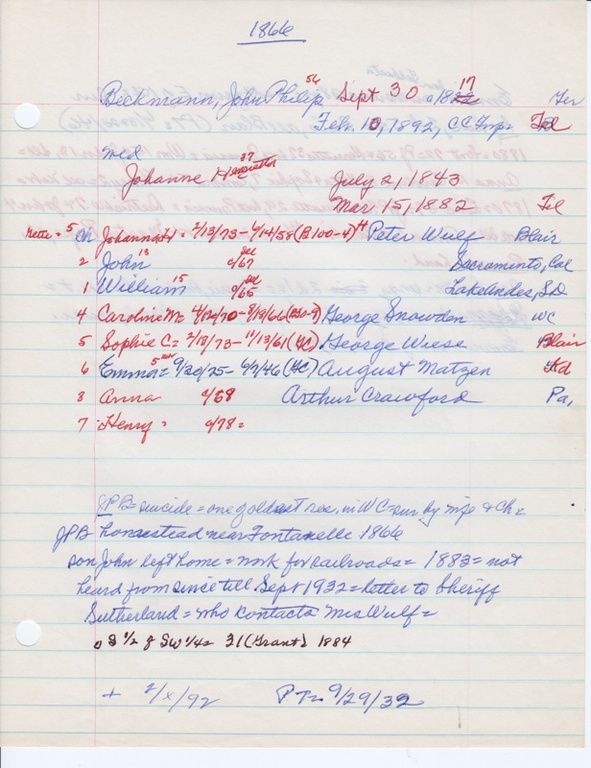 1866
Beckmann, John Philip 54 Sept 30 1822 17
Feb. 10, 1892, CC Fnp= Tel
Wed
Johanne Henrietta 37 July 2, 1843
Mar 15, 1882 Tel
5 Ch Johanna H = 2/13/73 - 6/14/58 (B 100-4) Peter Wulf Blair
2 John 13 c/67 Sacramento, Cal
1 William 15 c/65 Lake Andes, S.D
4 Caroline M= 4/12/70 - 9/19/66 George Snowden WC
5 Sophie C= 2/13/73 - 11/13/61 George Wiese Blair
6 Emma= 9/20/25 - 6/7/46 August Matzen
3 Anna c/68 Arthur Crawford Pa,
7 Henry= c/78=
JPB= suicide= one of oldest res. in WC= sur. by wife & Ch=
JPB homestead near Fontanelle 1866
son John left home= work for railroads= 1883= not
heard from since till Sept 1932= letter to Sheriff
Sutherland= who contacts Mrs Wulf=
S 1/2 of SW 1/4= 31 (Grant) 1884
+ 2/x/92 PT= 9/29/32